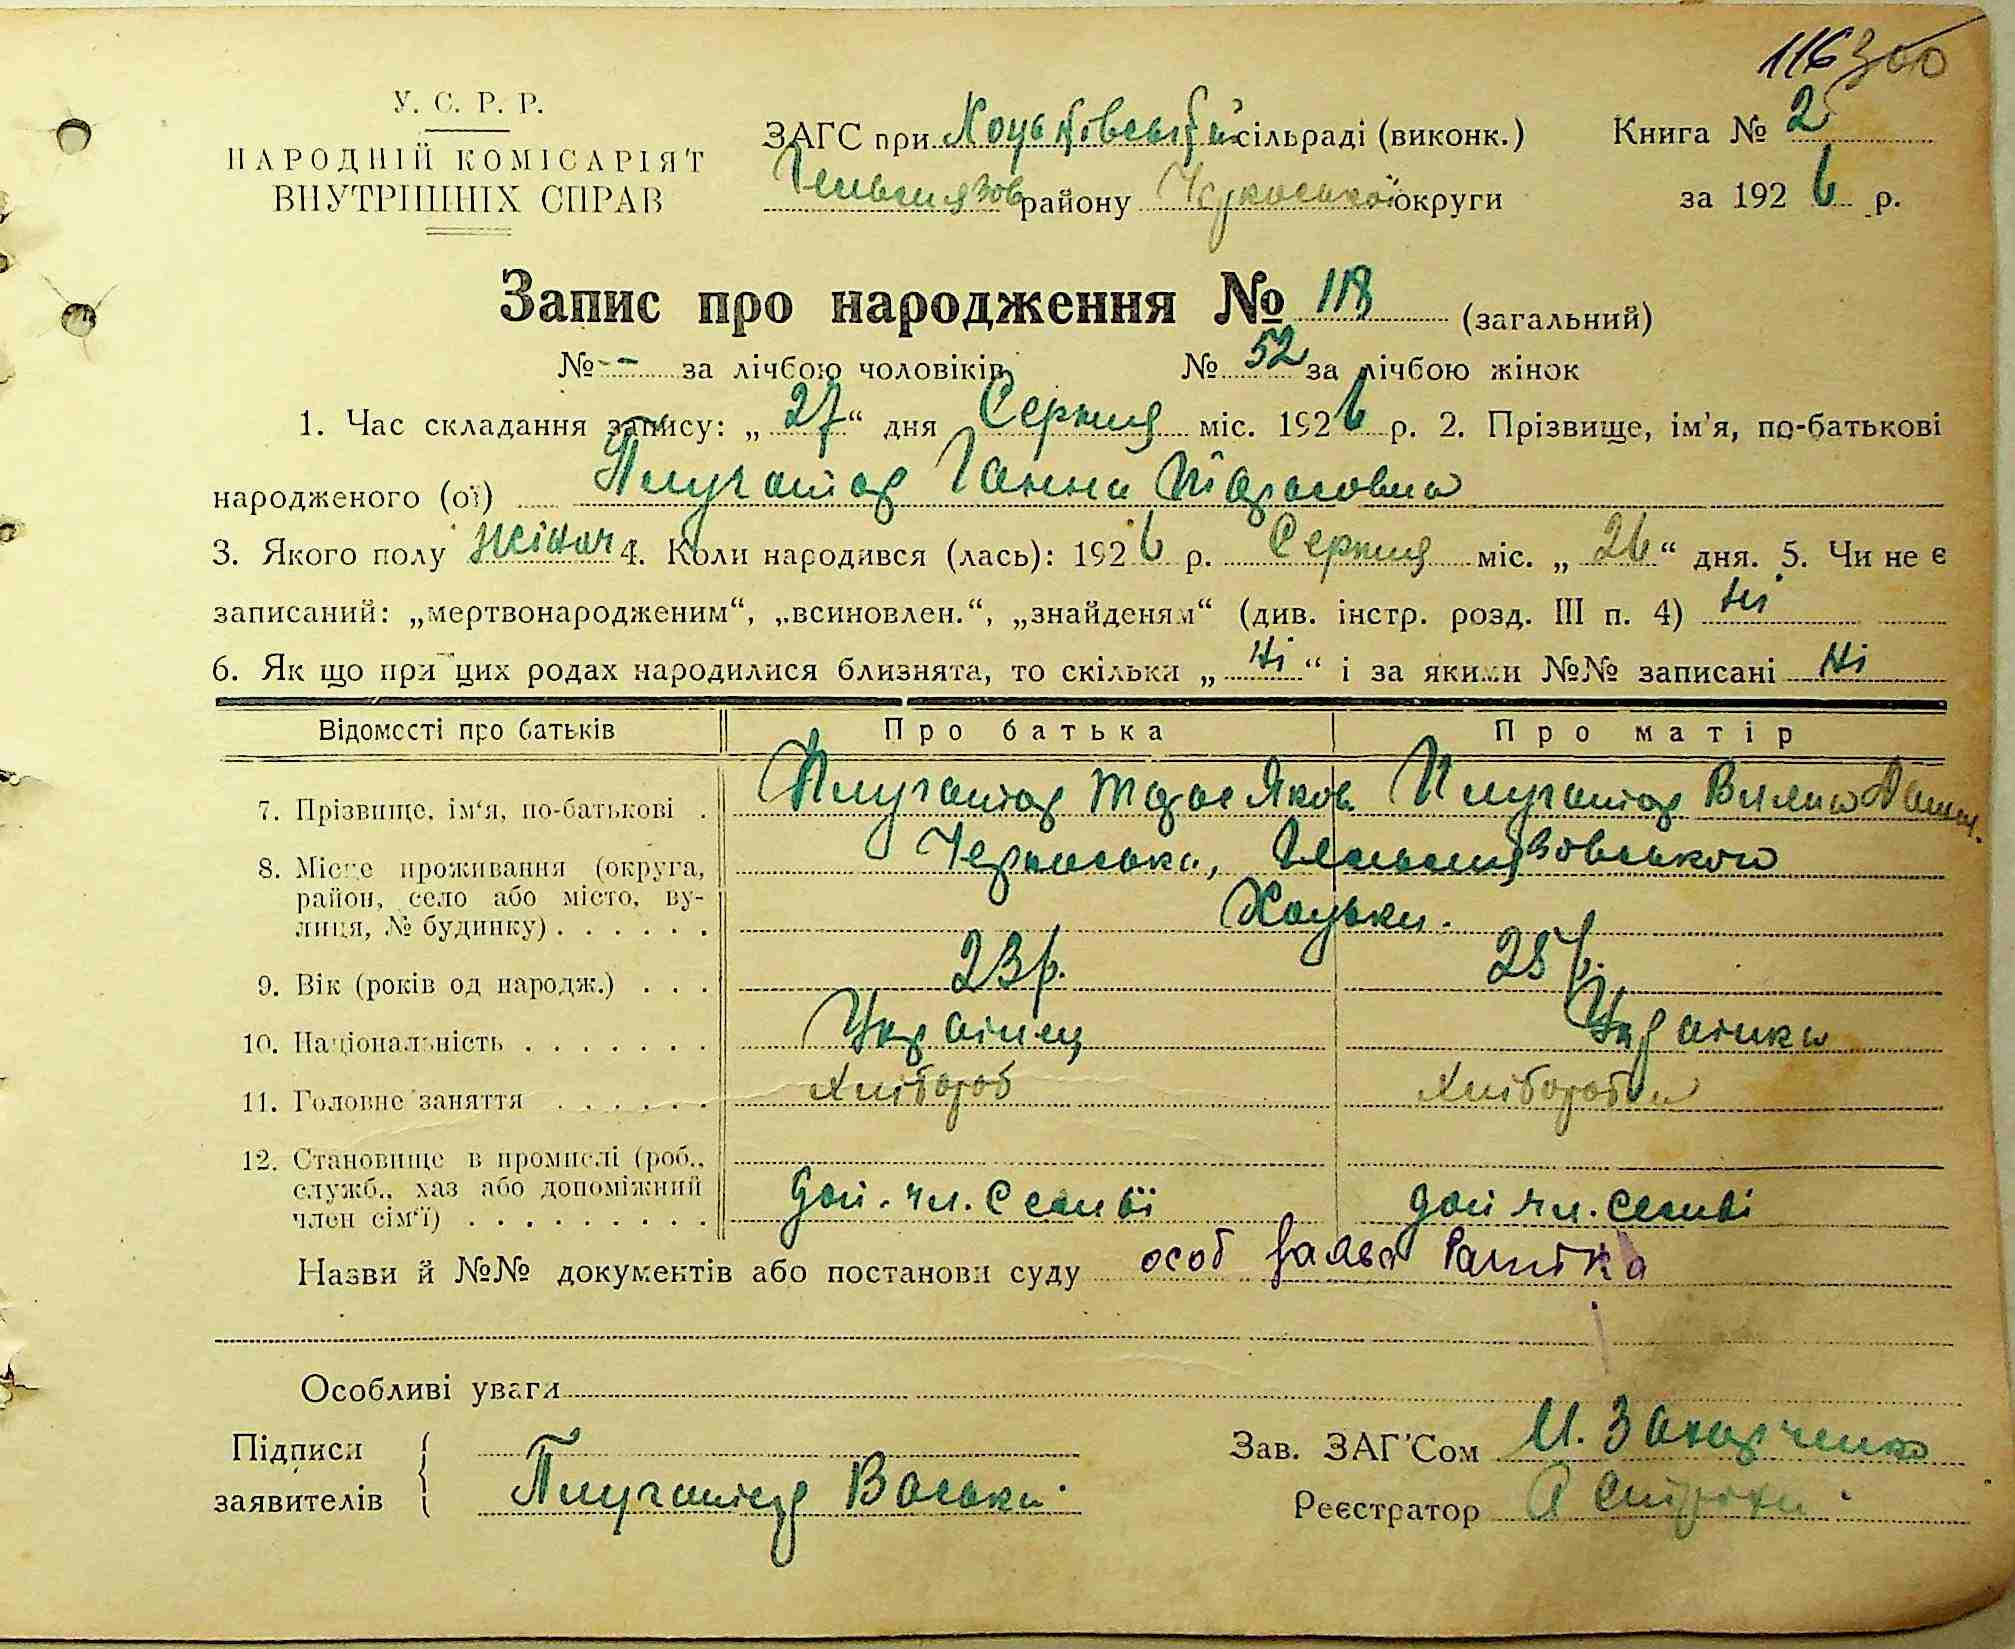 116 300
У. С. Р. Р.
НАРОДНІЙ КОМІСАРІЯТ
ВНУТРІШНІХ СПРАВ
ЗАГС при Хоцьківській сільраді (виконк.)
Гельмязов району Черкаської округи
Книга № 2
за 1926 р.
Запис про народження № 118 (загальний)
№ -- за лічбою чоловіків № 52 за лічбою жінок
1. Час складання запису: „27“ дня Серпня міс. 1926 р. 2. Прізвище, ім’я, по-батькові
народженого (ої) Плугатар Ганна Тарасовна
3. Якого полу жіноч 4. Коли народився (лась): 1926 р. Серпня міс. „26“ дня. 5. Чи не є
записаний: „мертвонародженим“, „всиновлен.“, „знайденям“ (див. інстр. розд. III п. 4) ні
6. Як що при цих родах народилися близнята, то скільки „ні“ і за якими №№ записані ні
Відомості про батьків Про батька Про матір
7. Прізвище, ім‘я, по-батькові . Плугатар Тарас Яков. Плугатар
8. Місце проживання (округа, район, село або місто, вулиця, № будинку) . . . . . . Черкаська, Гельмязовського
Хоцьки.
9. Вік (років од народж.) . . . 23 р. 25 р.
10. Національність . . . . . . . Українец Українка
11. Головне заняття . . . . . . Хлібороб Хліборобка
12. Становище в промислі (роб., служб., хаз або допоміжний член сім‘ї) . . . . . . . . . доп. чл. семві доп чл. семві
Назви й №№ документів або постанови суду особ заява
Особливі уваги
Підписи
заявителів
Плугатар Васька
Зав. ЗАГ’Сом И. Захарченко
Реєстратор